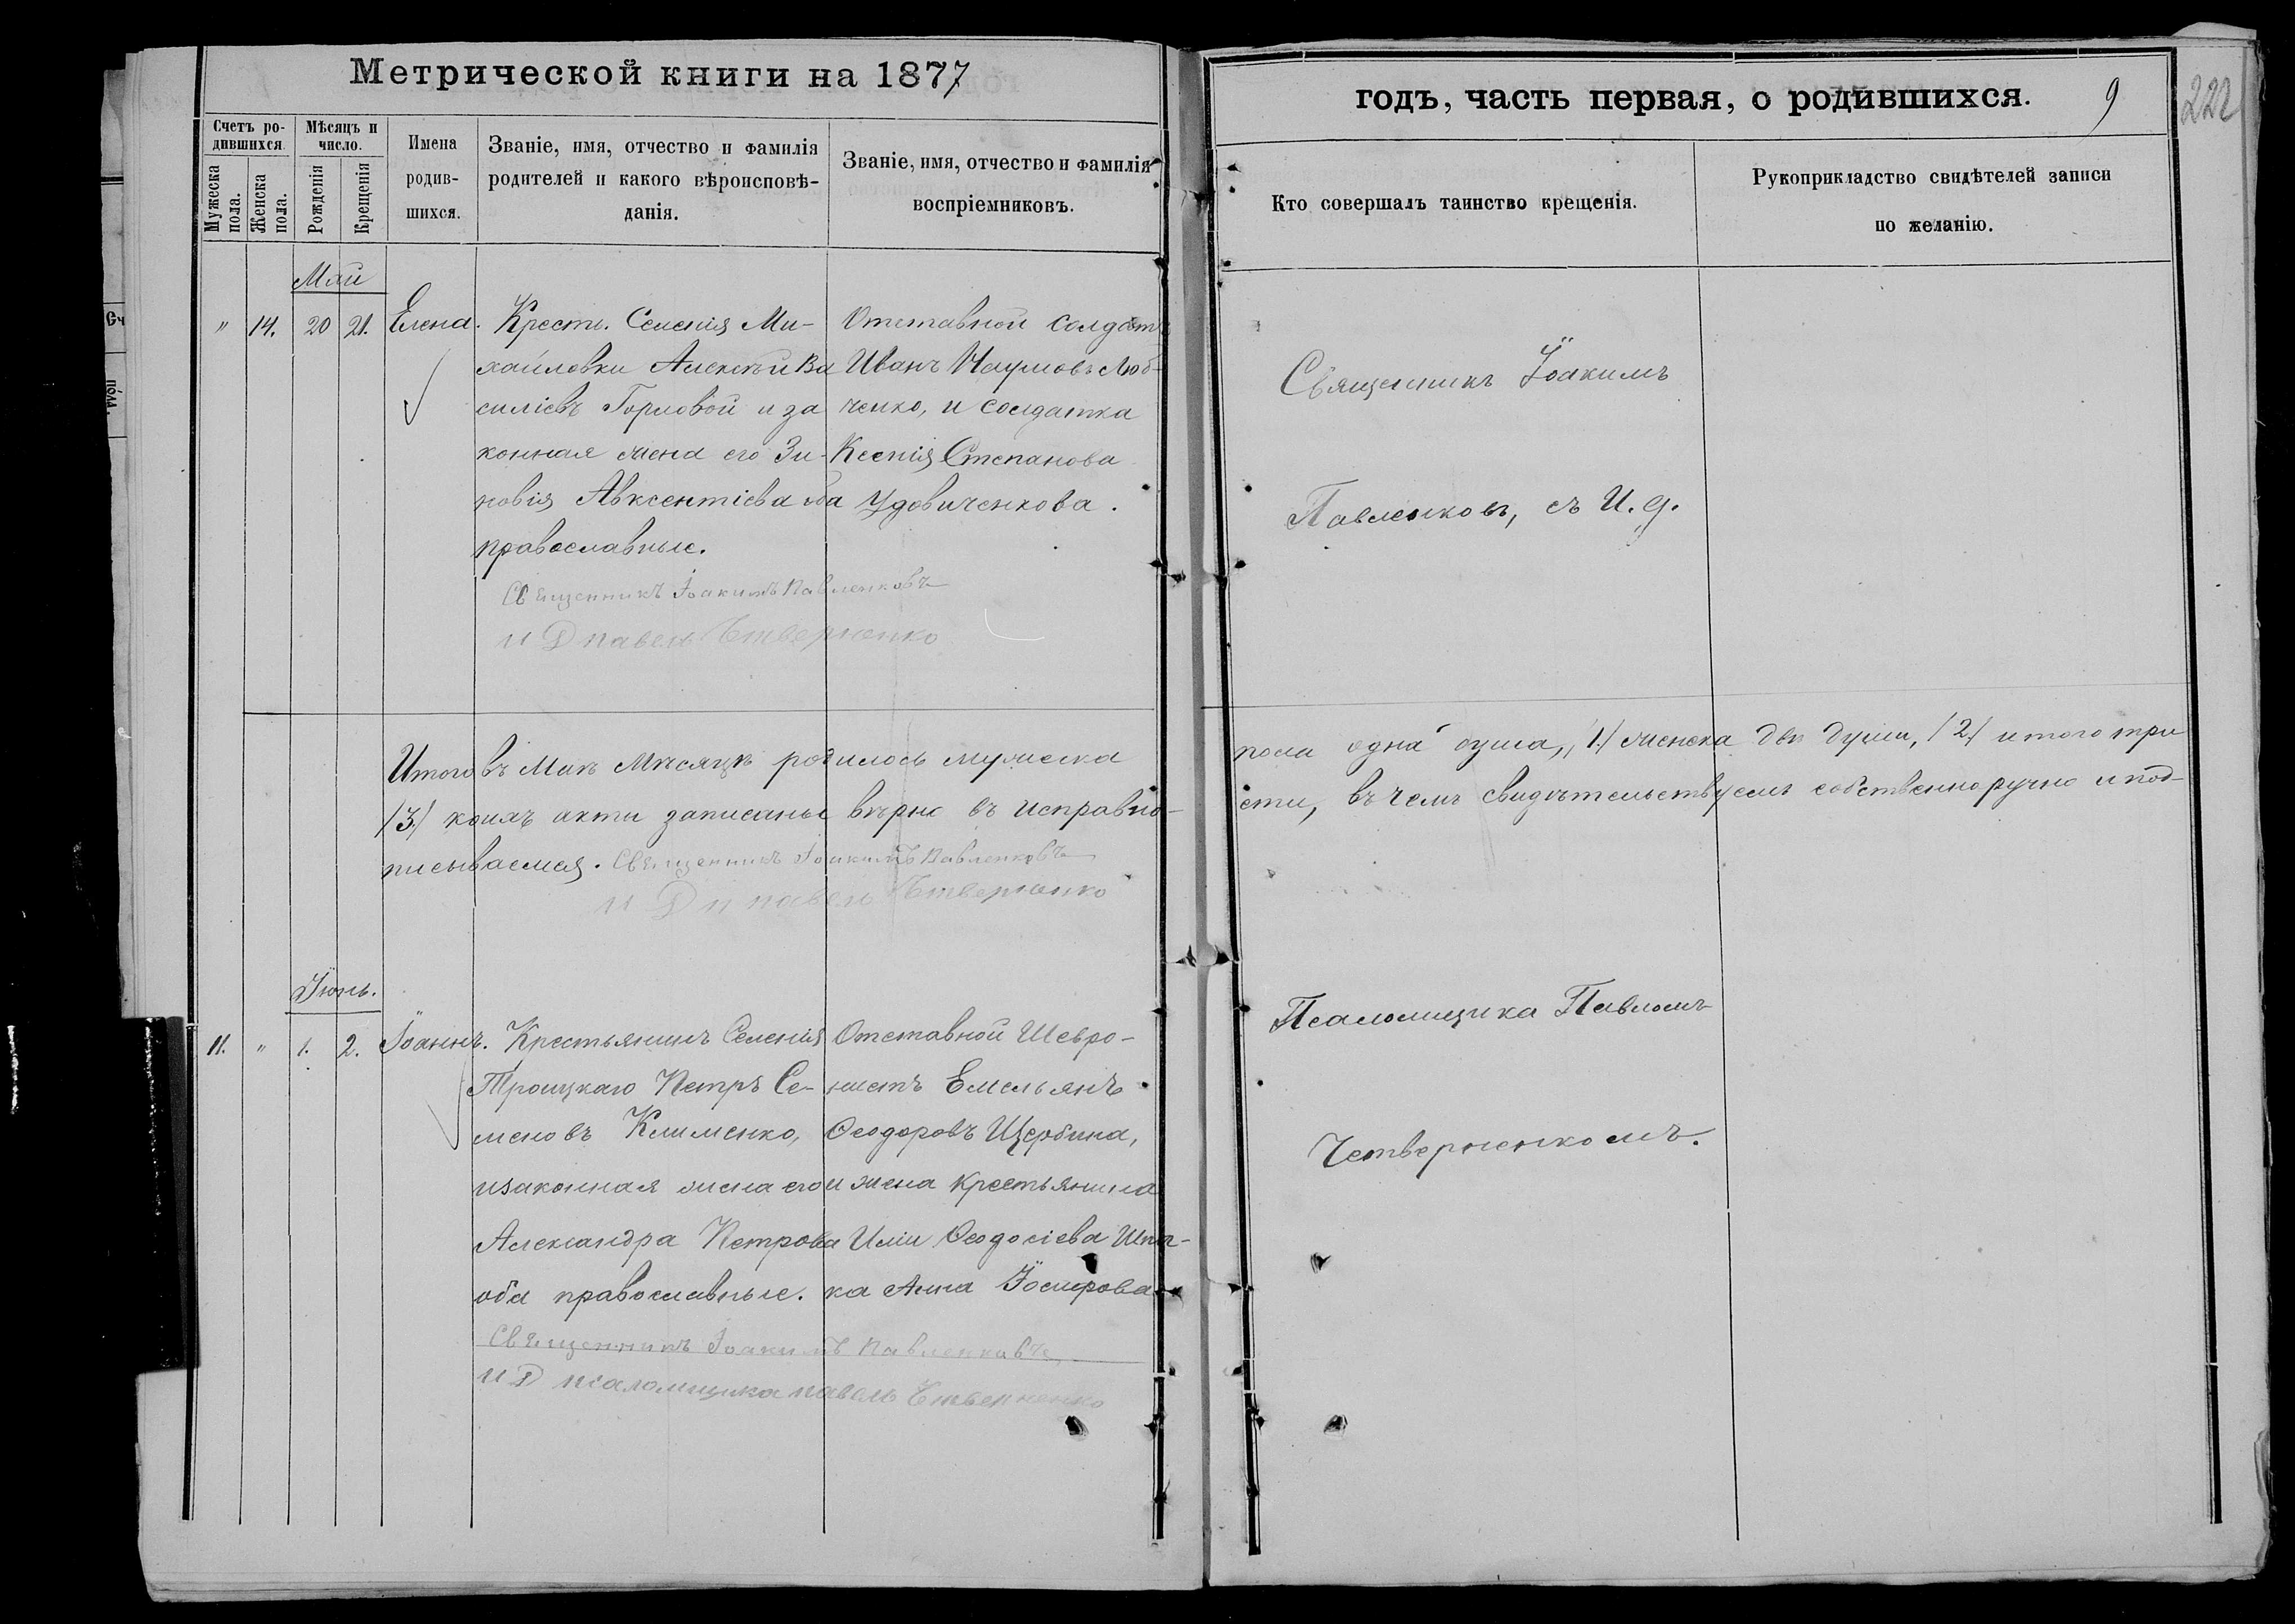 Метрической книги на 1877
Счетъ ро-
дившихся.
Мѣсяцъ и
число.
Мужеска
пола.
Женска
пола.
Рожденія
Крещенія
Имена
родив-
шихся.
Званіе, имя, отчество и фамилія
родителей и какого вѣроисповѣ-
данія.
Званіе, имя, отчество и фамилія
воспріемниковъ.
Май
" 14. 20 21. Елена.
Крестн. Селенія Ми-
хайловки Алексѣй Ва
силіевъ Горловой и за
конная жена его Зи-
новія Авксентіева оба
православные.
Отставной солдатъ
Иванъ Наумовъ Люб-
ченко, и солдатка
Ксенія Степанова
Удовиченкова.
Священникъ Іоакимъ Павленковъ
И Д павелъ Четверненко
Итого въ Маѣ Мѣсяцѣ родилось мужеска
/3/ коихъ акты записаны вѣрно въ исправно-
писываемся. Священникъ Іоакимъ Павленковъ
И Д п павелъ Четверненко
Іюнь.
11. " 1. 2. Іоаннъ.
Крестьянинъ Селенія
Троицкаго Петръ Се-
меновъ Клименко,
и законная жена его
Александра Петрова
оба православные.
Отставной Шевро-
нистъ Емельянъ
Ѳеодоровъ Щербина,
и жена крестьянина
Иліи Ѳеодосіева Шпа-
ка Анна Іосифова
Священникъ Іоакимъ Павленковъ
И Д псаломщика павелъ Четверненко
годъ, часть первая, о родившихся.
9
222
Кто совершалъ таинство крещенія.
Рукоприкладство свидѣтелей записи
по желанію.
Священникъ Іоакимъ
Павленковъ, съ И. д.
пола одна душа, /1/ женска двѣ души, /2/ итого три
сти, въ чемъ свидѣтельствуемъ собственноручно и под-
Псаломщика Павломъ
Четверненкомъ.